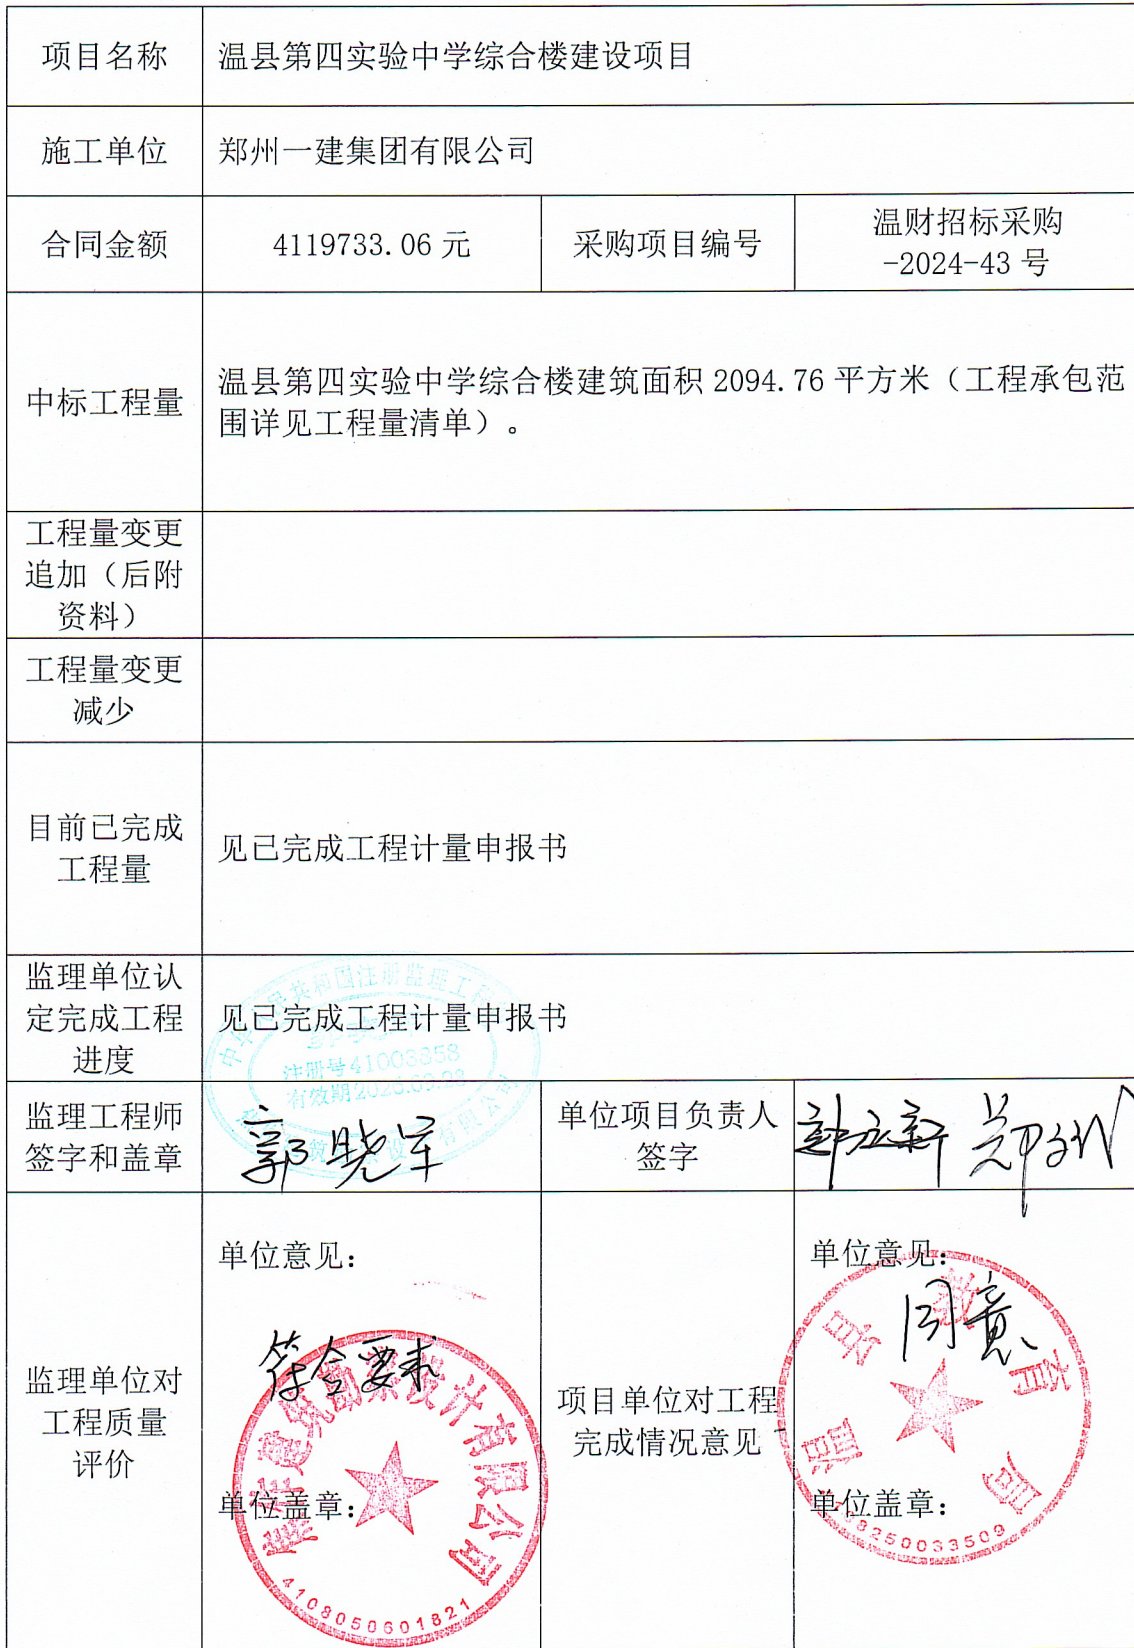 项目名称
温县第四实验中学综合楼建设项目
施工单位
郑州一建集团有限公司
合同金额
4119733.06 元
采购项目编号
温财招标采购
-2024-43 号
中标工程量
温县第四实验中学综合楼建筑面积 2094.76 平方米（工程承包范
围详见工程量清单）。
工程量变更
追加（后附
资料）
工程量变更
减少
目前已完成
工程量
见已完成工程计量申报书
监理单位认
定完成工程
进度
见已完成工程计量申报书
中华人民共和国注册监理工程师
注册号41003858
监理工程师
签字和盖章
郭晓军
单位项目负责人
签字
监理单位对
工程质量
评价
单位意见：
符合要求
建筑勘察设计有限公司
单位盖章：
4108050601821
项目单位对工程
完成情况意见
单位意见：
同意
温县教育局
单位盖章：
8250033509